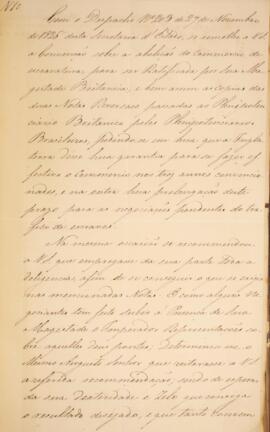 N 1º
Com o Despacho Nº 203 de 27 de Novembro
de 1826 desta Secretaria d'Estado, se remetteo a VS.
a Convenção sobre a abolição do Commercio de
escravatura para ser Ratificada por Sua Ma-
gestade Britanica, e bem assim as copias das
duas Notas Reversaes passadas ao Plenipoten-
ciario Britanico pelos Plenipotenciarios
Brasileiros, pedindo-se em hua que a Ingla-
terra desse hua garantia para se fazer ef-
fectivo o Commercio nos tres annos convencio-
nados, e na outra hua prolongação deste
prazo para as negociações pendentes do tra-
fico de escravos.
Na mesma occasião se recommendou
a VS. que empregasse da sua parte toda a
deligencia, afim de se conseguir o que se exigia
nas mencionadas Notas. E como alguns Ne-
gociantes tem feito subir á Presença de Sua
Magestade o Imperador Representações so-
bre aquelles dous pontos, Determinou-me o
Mesmo Augusto Senhor que reiterasse a VS.
a referida recommendação, sendo de esperar
da sua dexteridade e zelo que consiga
o resultado desejado, e que tanto convem